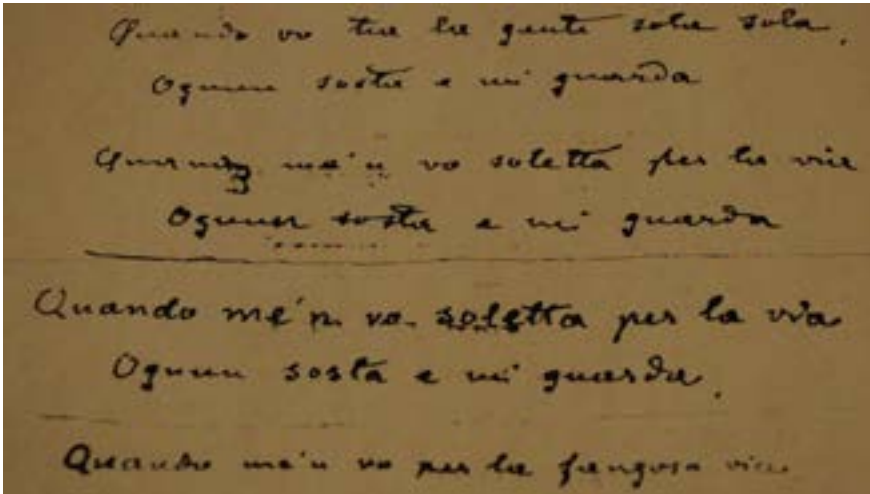 Quando vo tra la gente sola sola.
Ognun sosta e mi guarda
Quando me'n vo soletta per la via
Ognun sosta e mi guarda
Quando me'n vo soletta per la via
Ognun sosta e mi guarda.
Quando me'n vo per la fangosa via